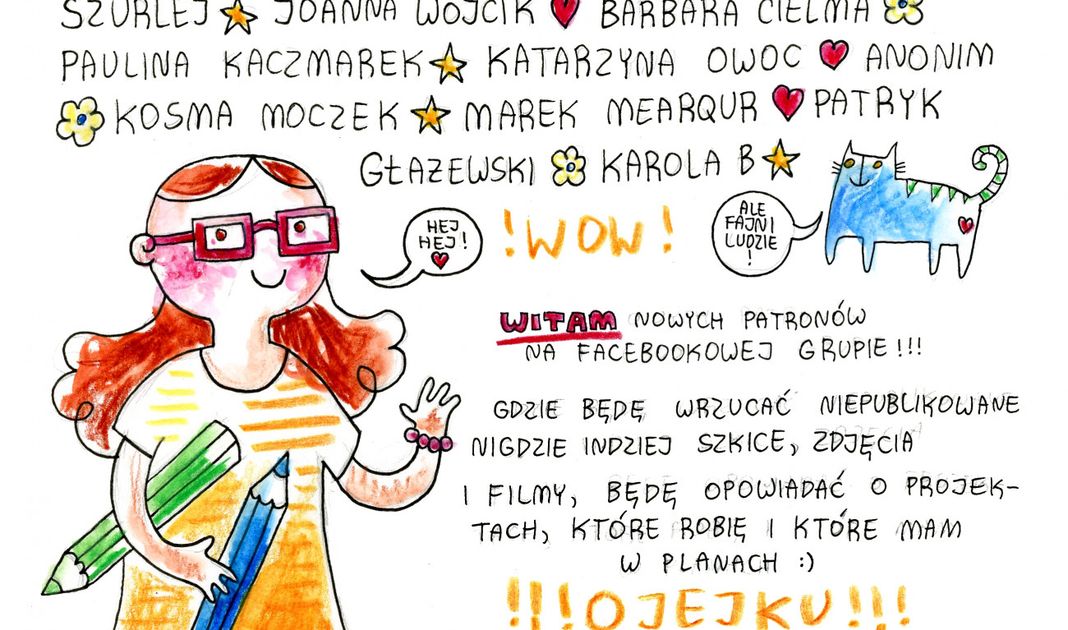 SZURLEJ JOANNA WÓJCIK BARBARA CIELMA
PAULINA KACZMAREK KATARZYNA OWOC ANONIM
KOSMA MOCZEK MAREK MEARQUR PATRYK
GŁAZEWSKI KAROLA B
HEJ
HEJ!
!WOW!
ALE
FAJNI
LUDZIE
!
WITAM NOWYCH PATRONÓW
NA FACEBOOKOWEJ GRUPIE!!!
GDZIE BĘDĘ WRZUCAĆ NIEPUBLIKOWANE
NIGDZIE INDZIEJ SZKICE, ZDJĘCIA
I FILMY, BĘDĘ OPOWIADAĆ O PROJEK-
TACH, KTÓRE ROBIĘ I KTÓRE MAM
W PLANACH :)
!!!OJEJKU!!!